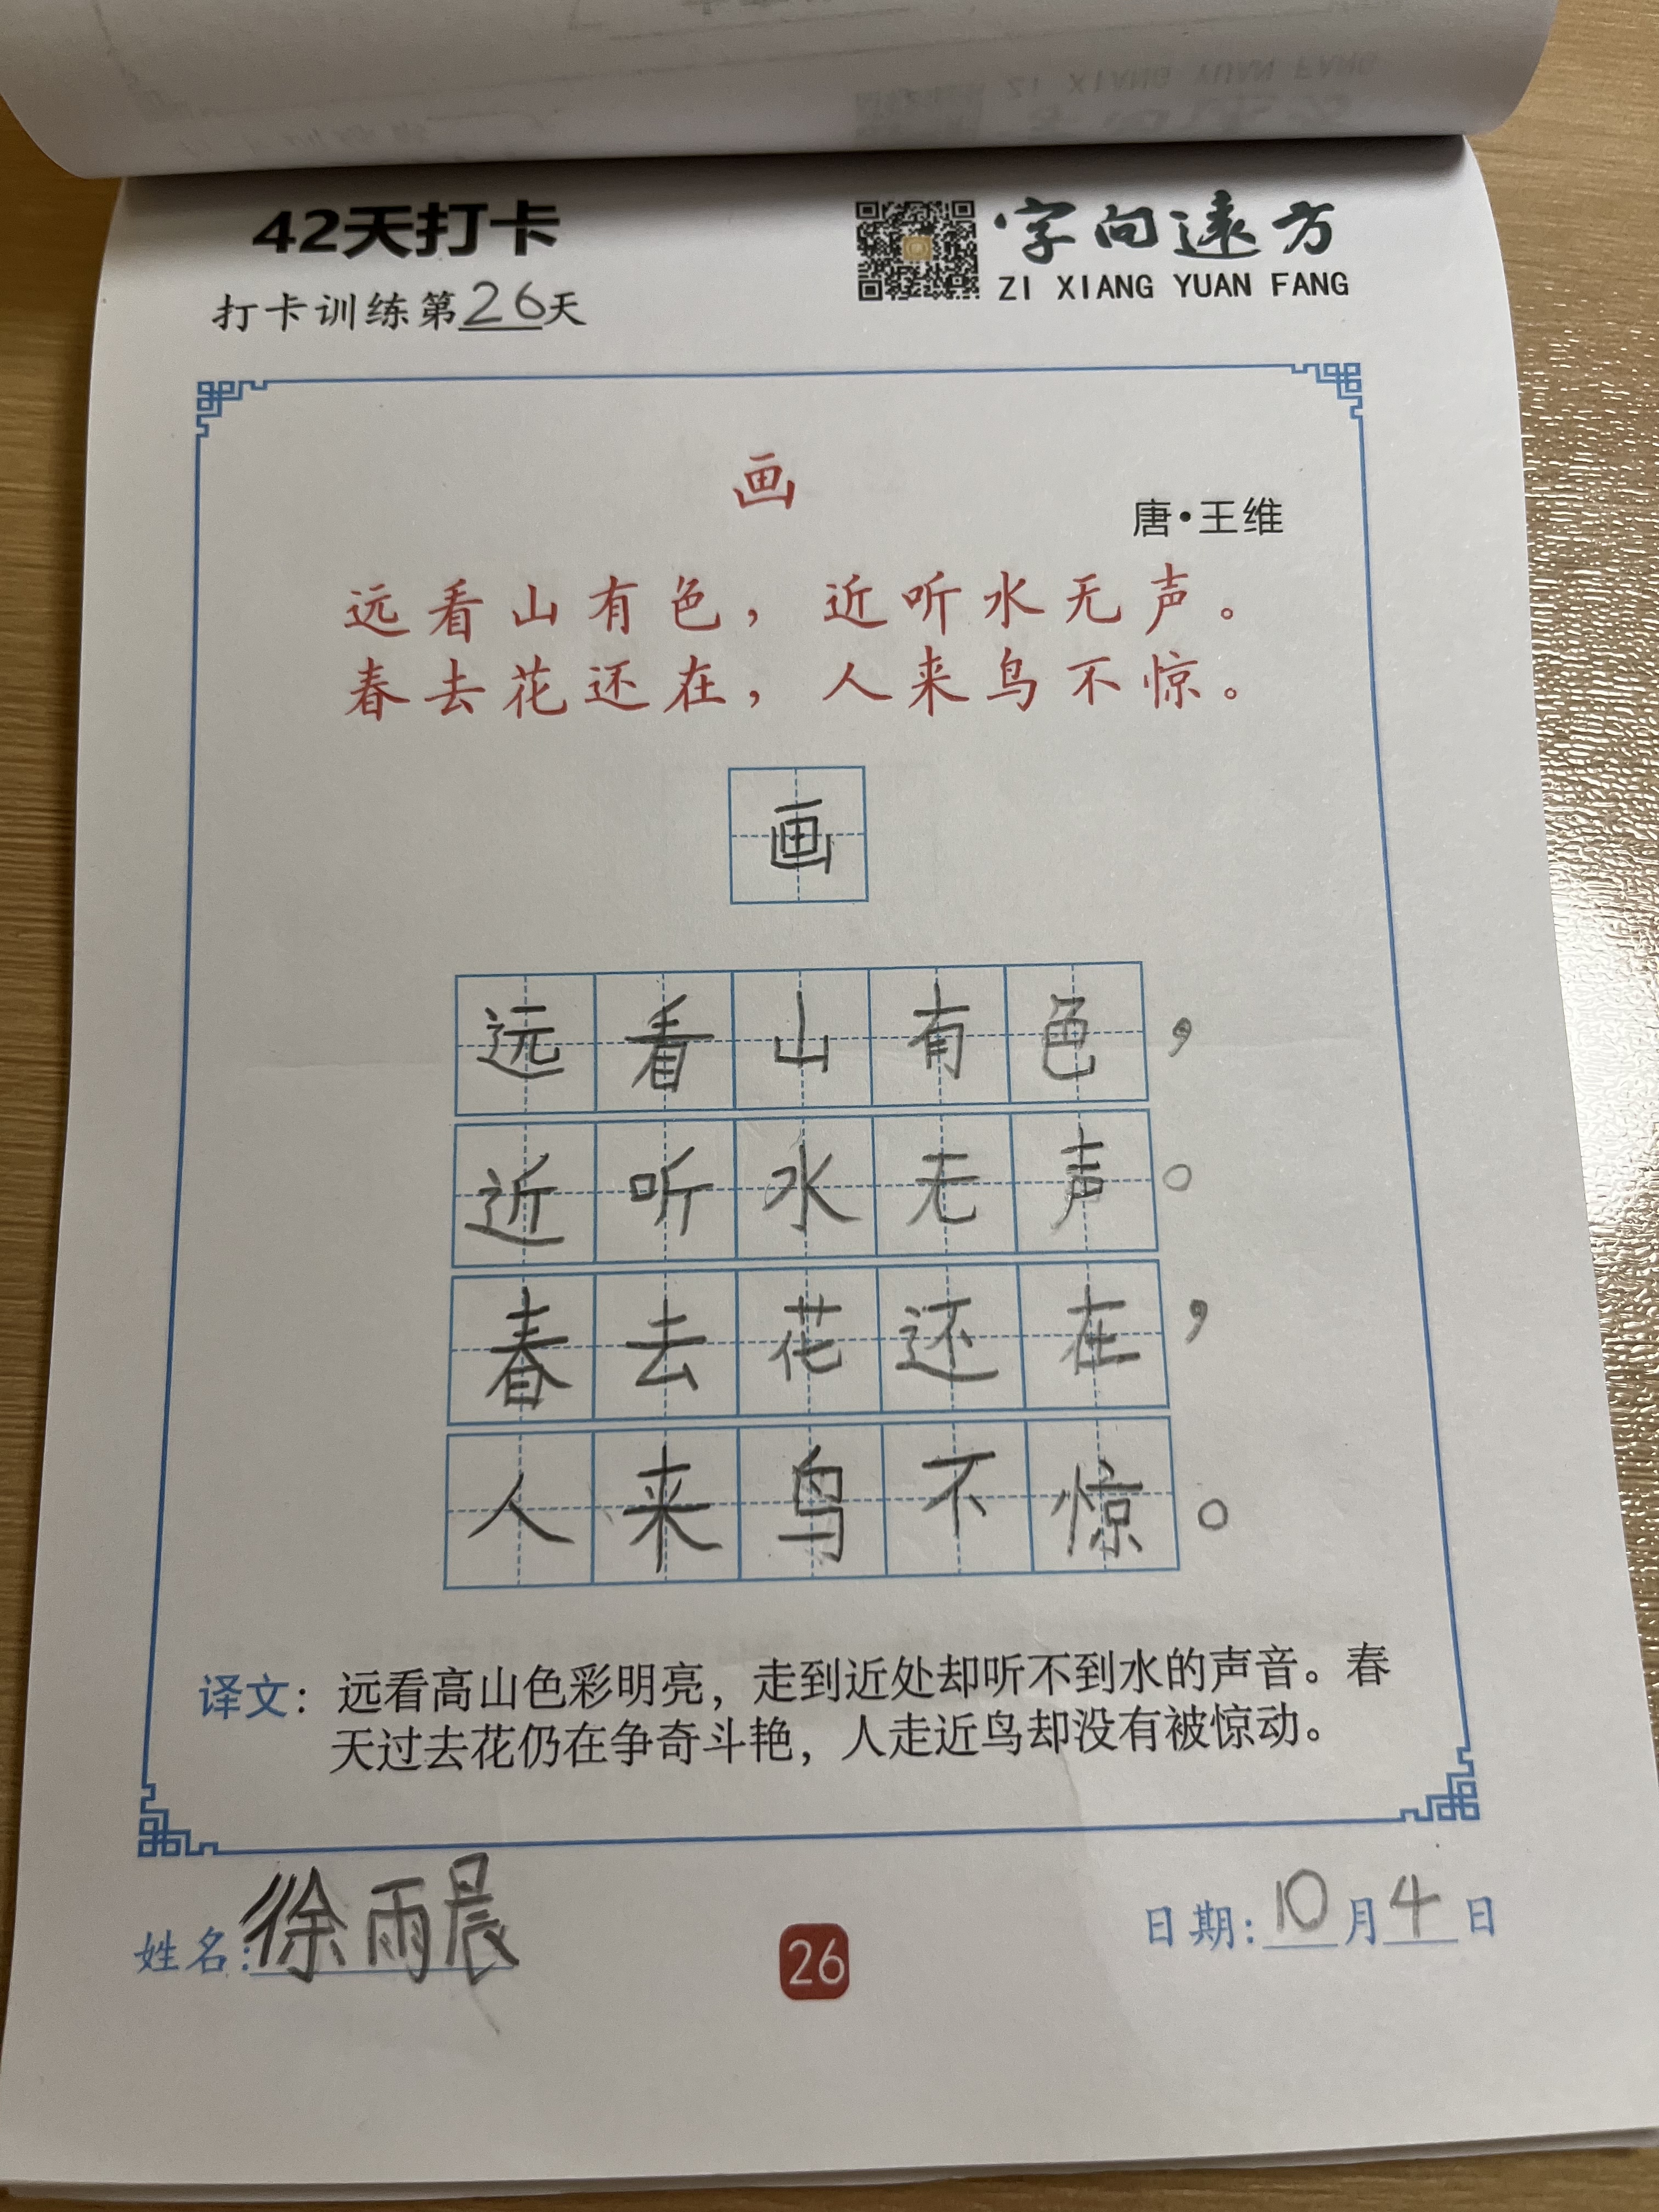 42天打卡
字向遠方
ZI XIANG YUAN FANG
打卡训练第26天
画
唐·王维
远看山有色，近听水无声。
春去花还在，人来鸟不惊。
画
远看山有色，
近听水无声。
春去花还在，
人来鸟不惊。
译文：远看高山色彩明亮，走到近处却听不到水的声音。春
天过去花仍在争奇斗艳，人走近鸟却没有被惊动。
姓名：徐雨晨
26
日期：10月4日